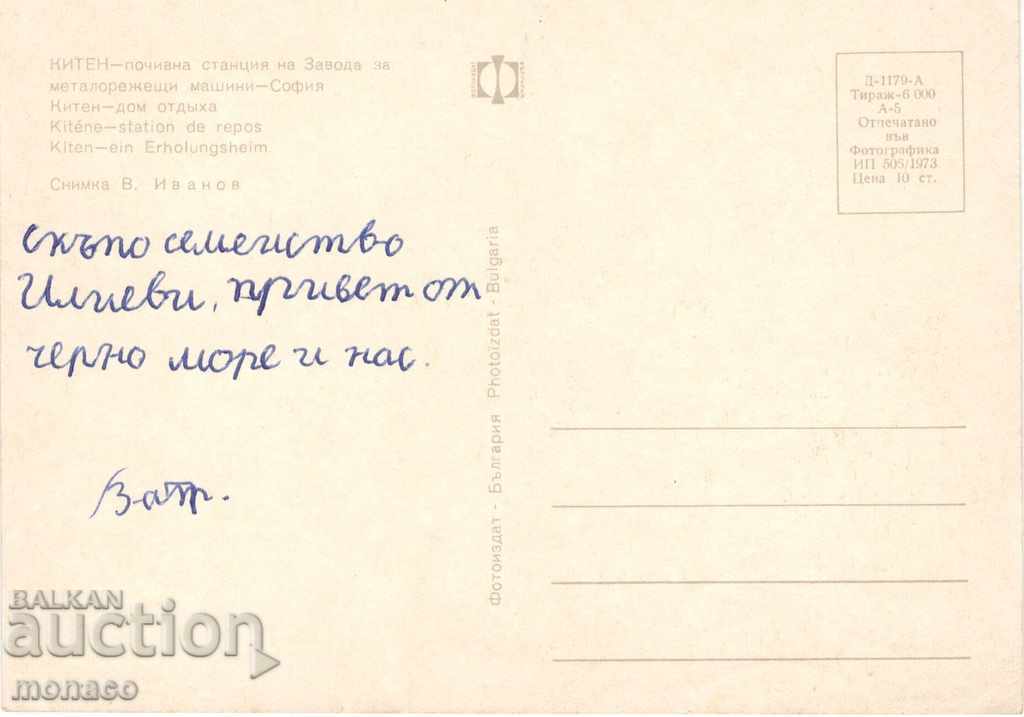 КИТЕН—почивна станция на Завода за
металорежещи машини—София
Китен—дом отдыха
Kiténe—station de repos
Kiten—ein Erholungsheim
Снимка В. Иванов
Д-1179-А
Тираж-6 000
А-5
Отпечатано
във
Фотографика
ИП 505/1973
Цена 10 ст.
скъпо семейство
Илиеви, привет от
черно море и нас.
Фотоиздат - България Photoizdat - Bulgaria
BALKAN
auction
monaco